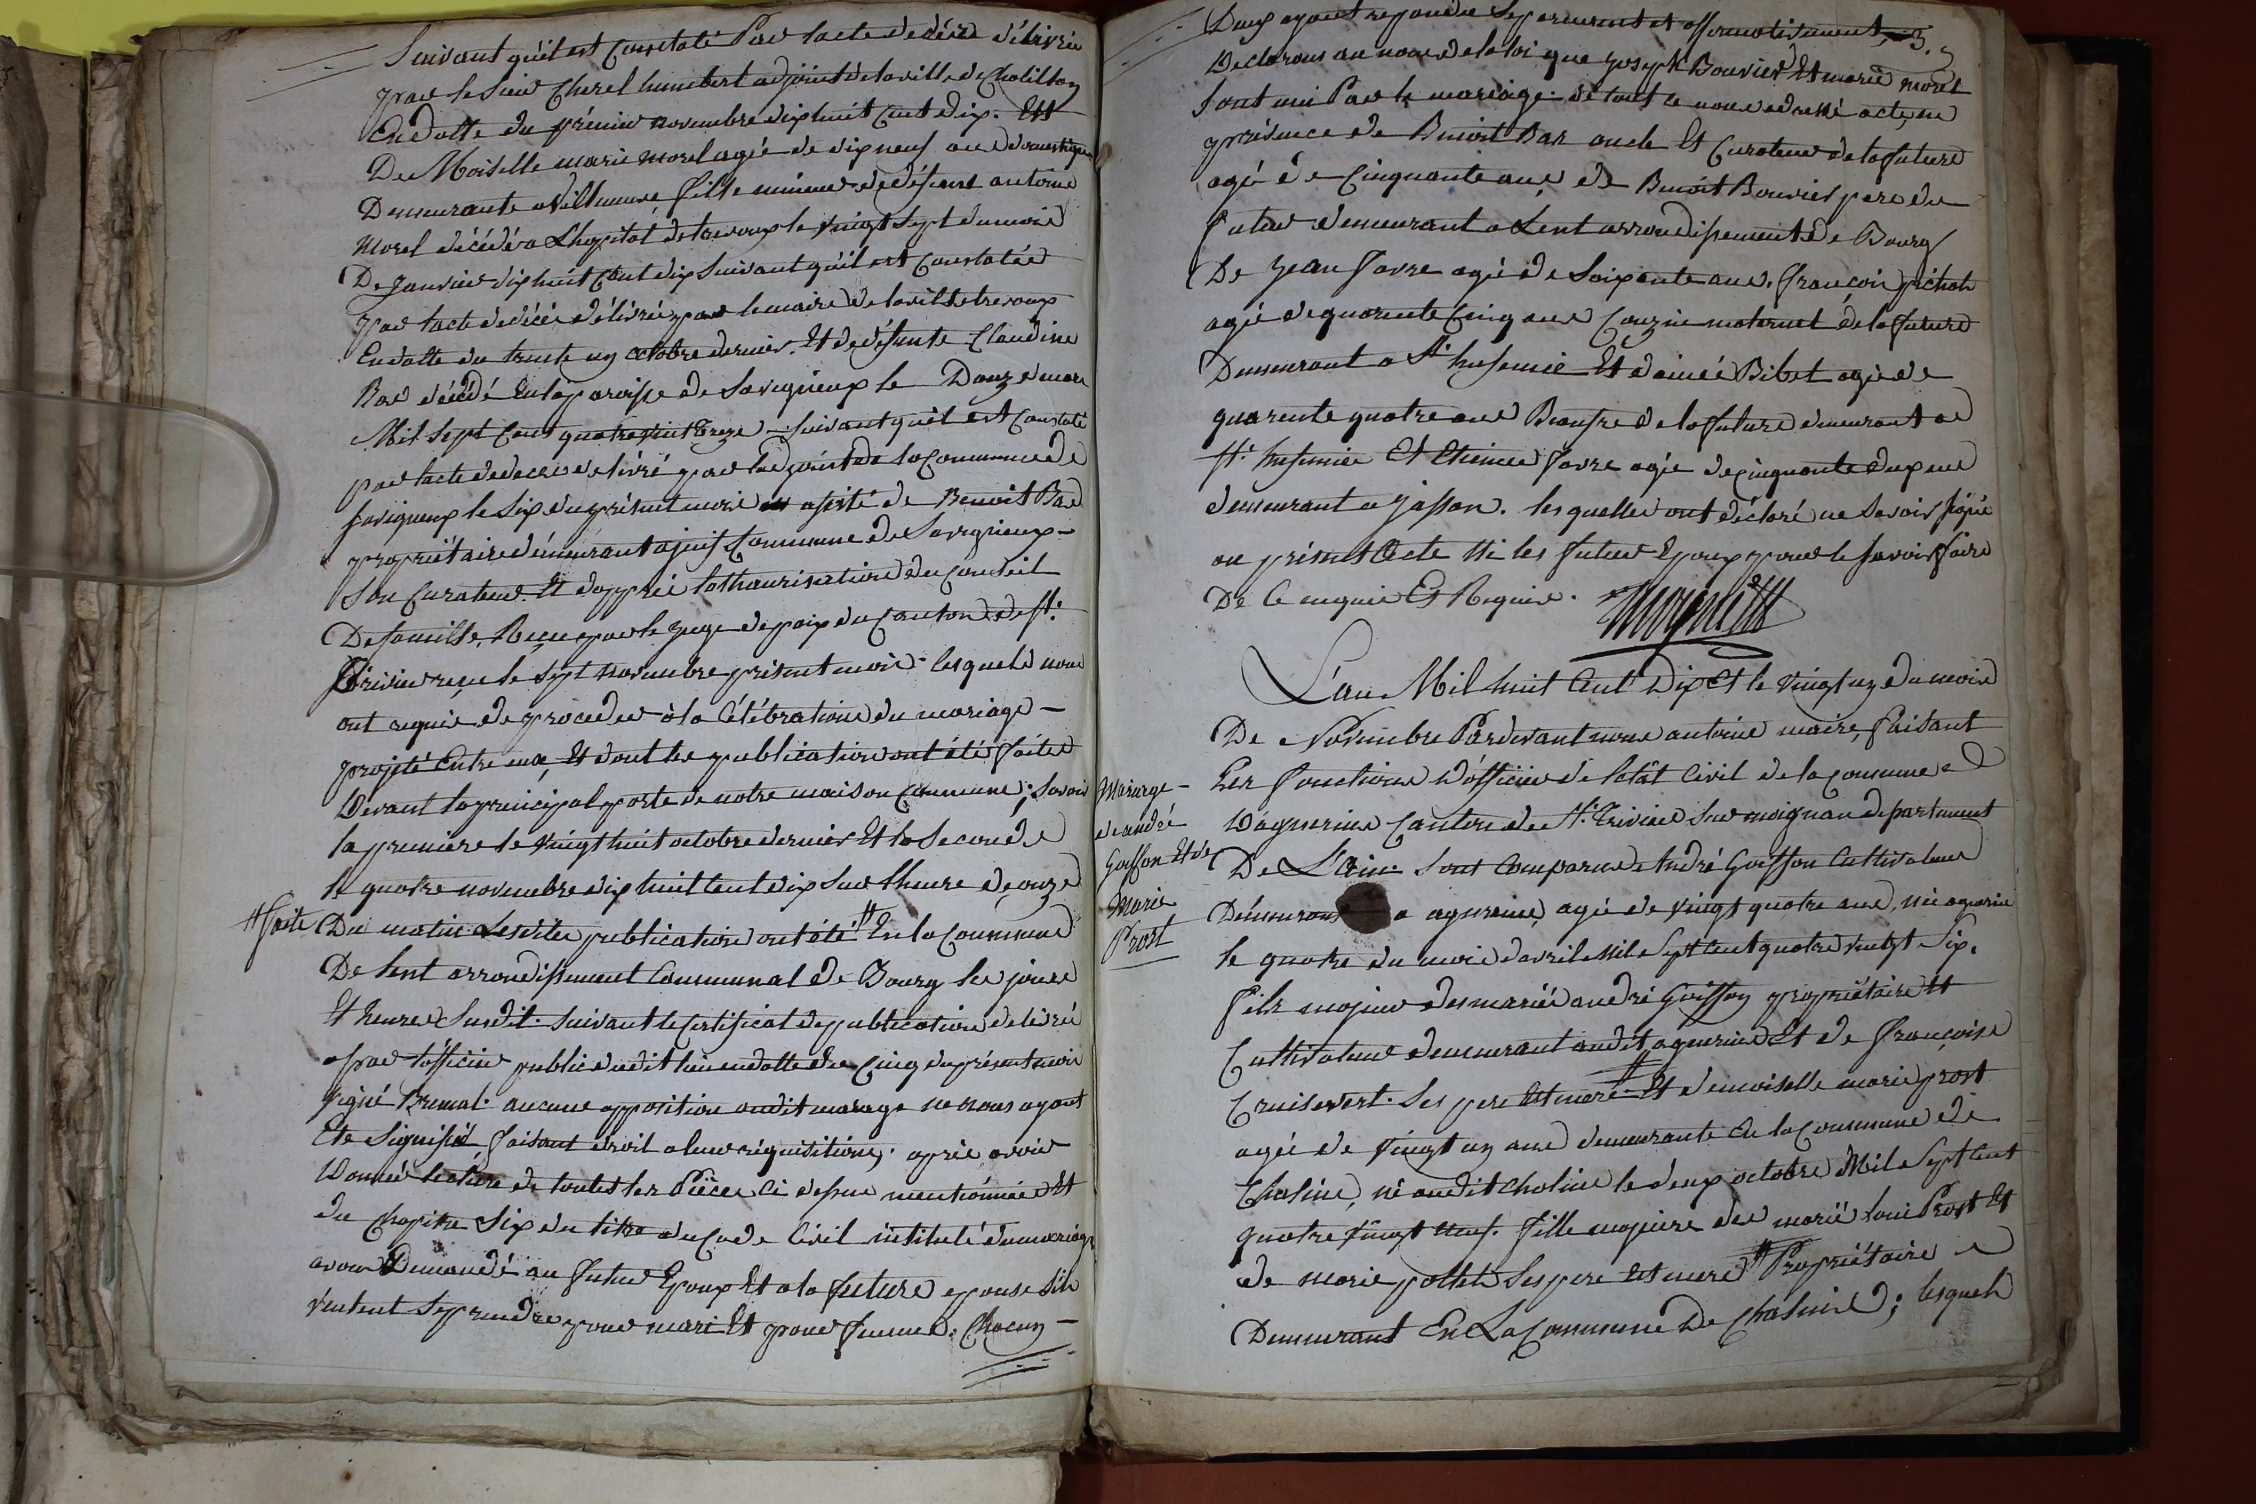 Suivant qu'il est Constaté Par lacte de décé délivrée
par le Sieur Cherel humbert adjoint de la ville de Chatillon
En datte du prémier novembre dix huit Cent dix. Et
De Moiselle marie morel agée de dix neuf ans domestique
Demeurante a Villeneuve fille mineur de défunt antoine
Morel décédé a L'hopital de trevoux le vingt sept du mois
De Janvier dix huit Cent dix Suivant qu'il est Constatée
par lacte de décé délivrée par le maire de la ville trevoux
En datte du trente un octobre dernier. Et de défunte Claudine
Bas décédé En la paroisse de Savigneux le Douze mars
Mil Sept Cent quatre vint treze – Suivant quil est Constaté
par lacte de deces délivré par ladjoint de la Commune de
Savigneux le Six du présent mois assisté de Benoit Bas
propriétaire démeurant a juif Commune de Savigneux –
Son Curateur. Et d'apprés lothaurisation du Conseil
De famille, Reçue par le Juge de paix du Canton de St.
Trivier reçue le Sept novembre présent mois. lesquels nous
ont requis de proceder à la Célébration du mariage –
projété Entre eux, Et dont les publication ont été faites
Devant la principal porte de notre maison Commune; Savoir
la premiere le vingt huit octobre dernier Et la Seconde
le quatre novembre dix huit Cent dix Sur l'heure de onze
Du matin Lesdites publication ont été # En la Commune
# faite
De lent arrondissement Communal de Bourg les jours
Et heures Susdit. Suivant le Certificat de publication délivré
par l'officier public dudit lieu en datte du Cinq du présent mois
Signé Brunal. aucune opposition audit mariage ne nous ayant
Ete Signifié, faisant droit a leur réquisitions; aprés avoir
Donnée lecture de toutes les Pièces Ci dessus mentionnées Et
du Chapitre Six du titre du Code Civil intitulé du mariage
avons Demandé au futur Epoux Et a la future epouse S'ils
veulent Se prendre pour mari Et pour femme, Chacun –
Deux ayant repondu Séparement et affirmativement, 3.
Declarons au nom de la loi que Joseph Bouvier Et marie morel
Sont uni Par le mariage. de tout ce nous adressé acte, en
présence de Benoit Bas oncle Et Curateur de la future
agé de Cinquante ans de Benoit Bouvier pere du
futur demeurant a Lent arrondissement de Bourg
De Jean favre agé de Soixante ans. François pichat
agé de quarente Cinq ans Couzin maternel de la future
Demeurant a Ste hufemie Et d'aimée Bibet agé de
quarente quatre ans Beaufre de la future demeurant a
Ste hufemie Et Etienne favre agé de cinquante deux ans
demeurant a Jassan. lesquelles ont déclaré ne Savoir Signé
au présent acte Ni les futur Epoux pour le Savoir faire
De Ce enquis Et Requis.
Mariarge –
de andré
Goiffon Et de
Marie
Prost
L'an Mil huit Cent Dix Et le vingt un du mois
De Novembre Pardevant nous antoine maire, faisant
Les fonctions D'officier de l'etât Civil de la Commune
D'agnerins Canton de St. Trivier Sur moignan departement
De L'ain Sont Comparus André Goiffon Cultivateur
Démeurans a agnereins, agé de vingt quatre ans, né agnerins
le quatre du mois d'avril Mil Sept Cent quatre vingt Six.
fils majeur des mariés andré Goiffon propriétaire Et
Cultivateur demeurant audit agnerins Et de françoise
Cruisevert. Ses pere Et mere # Et demoiselle marie prost
agée de vingt un ans demeurante En la Commune de
Chaleins, né audit Chaleins le deux octobre Mil Sept Cent
quatre vingt neuf. fille majeure des marié loui Prost Et
de marie pollet Ses pere Et mere # Propriétaire
Demeurant En La Commune De Chaleins; lesquels